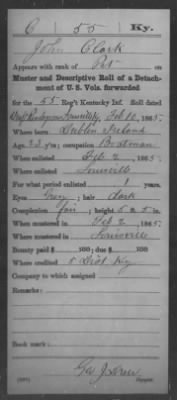 C 55 Ky.
John Clark
Appears with rank of Pvt on
Muster and Descriptive Roll of a Detach-
ment of U. S. Vols. forwarded
for the 55 Reg't Kentucky Inf. Roll dated
Louisville, Feb 10, 1865.
Where born Dublin Ireland
Age 23 y'rs; occupation Boatman
When enlisted Feb 2, 1865.
Where enlisted Louisville
For what period enlisted 1 years.
Eyes Grey; hair dark
Complexion Fair; height 5 ft. 5 in.
When mustered in Feb 2, 1865.
Where mustered in Louisville
Bounty paid $ 100; due $ 100
Where credited 5 Dist Ky
Company to which assigned
Remarks:
Book mark:
Copyist.